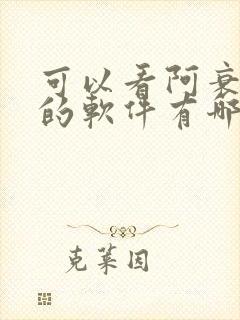 可以看阿衰
的軟件有哪
克萊因